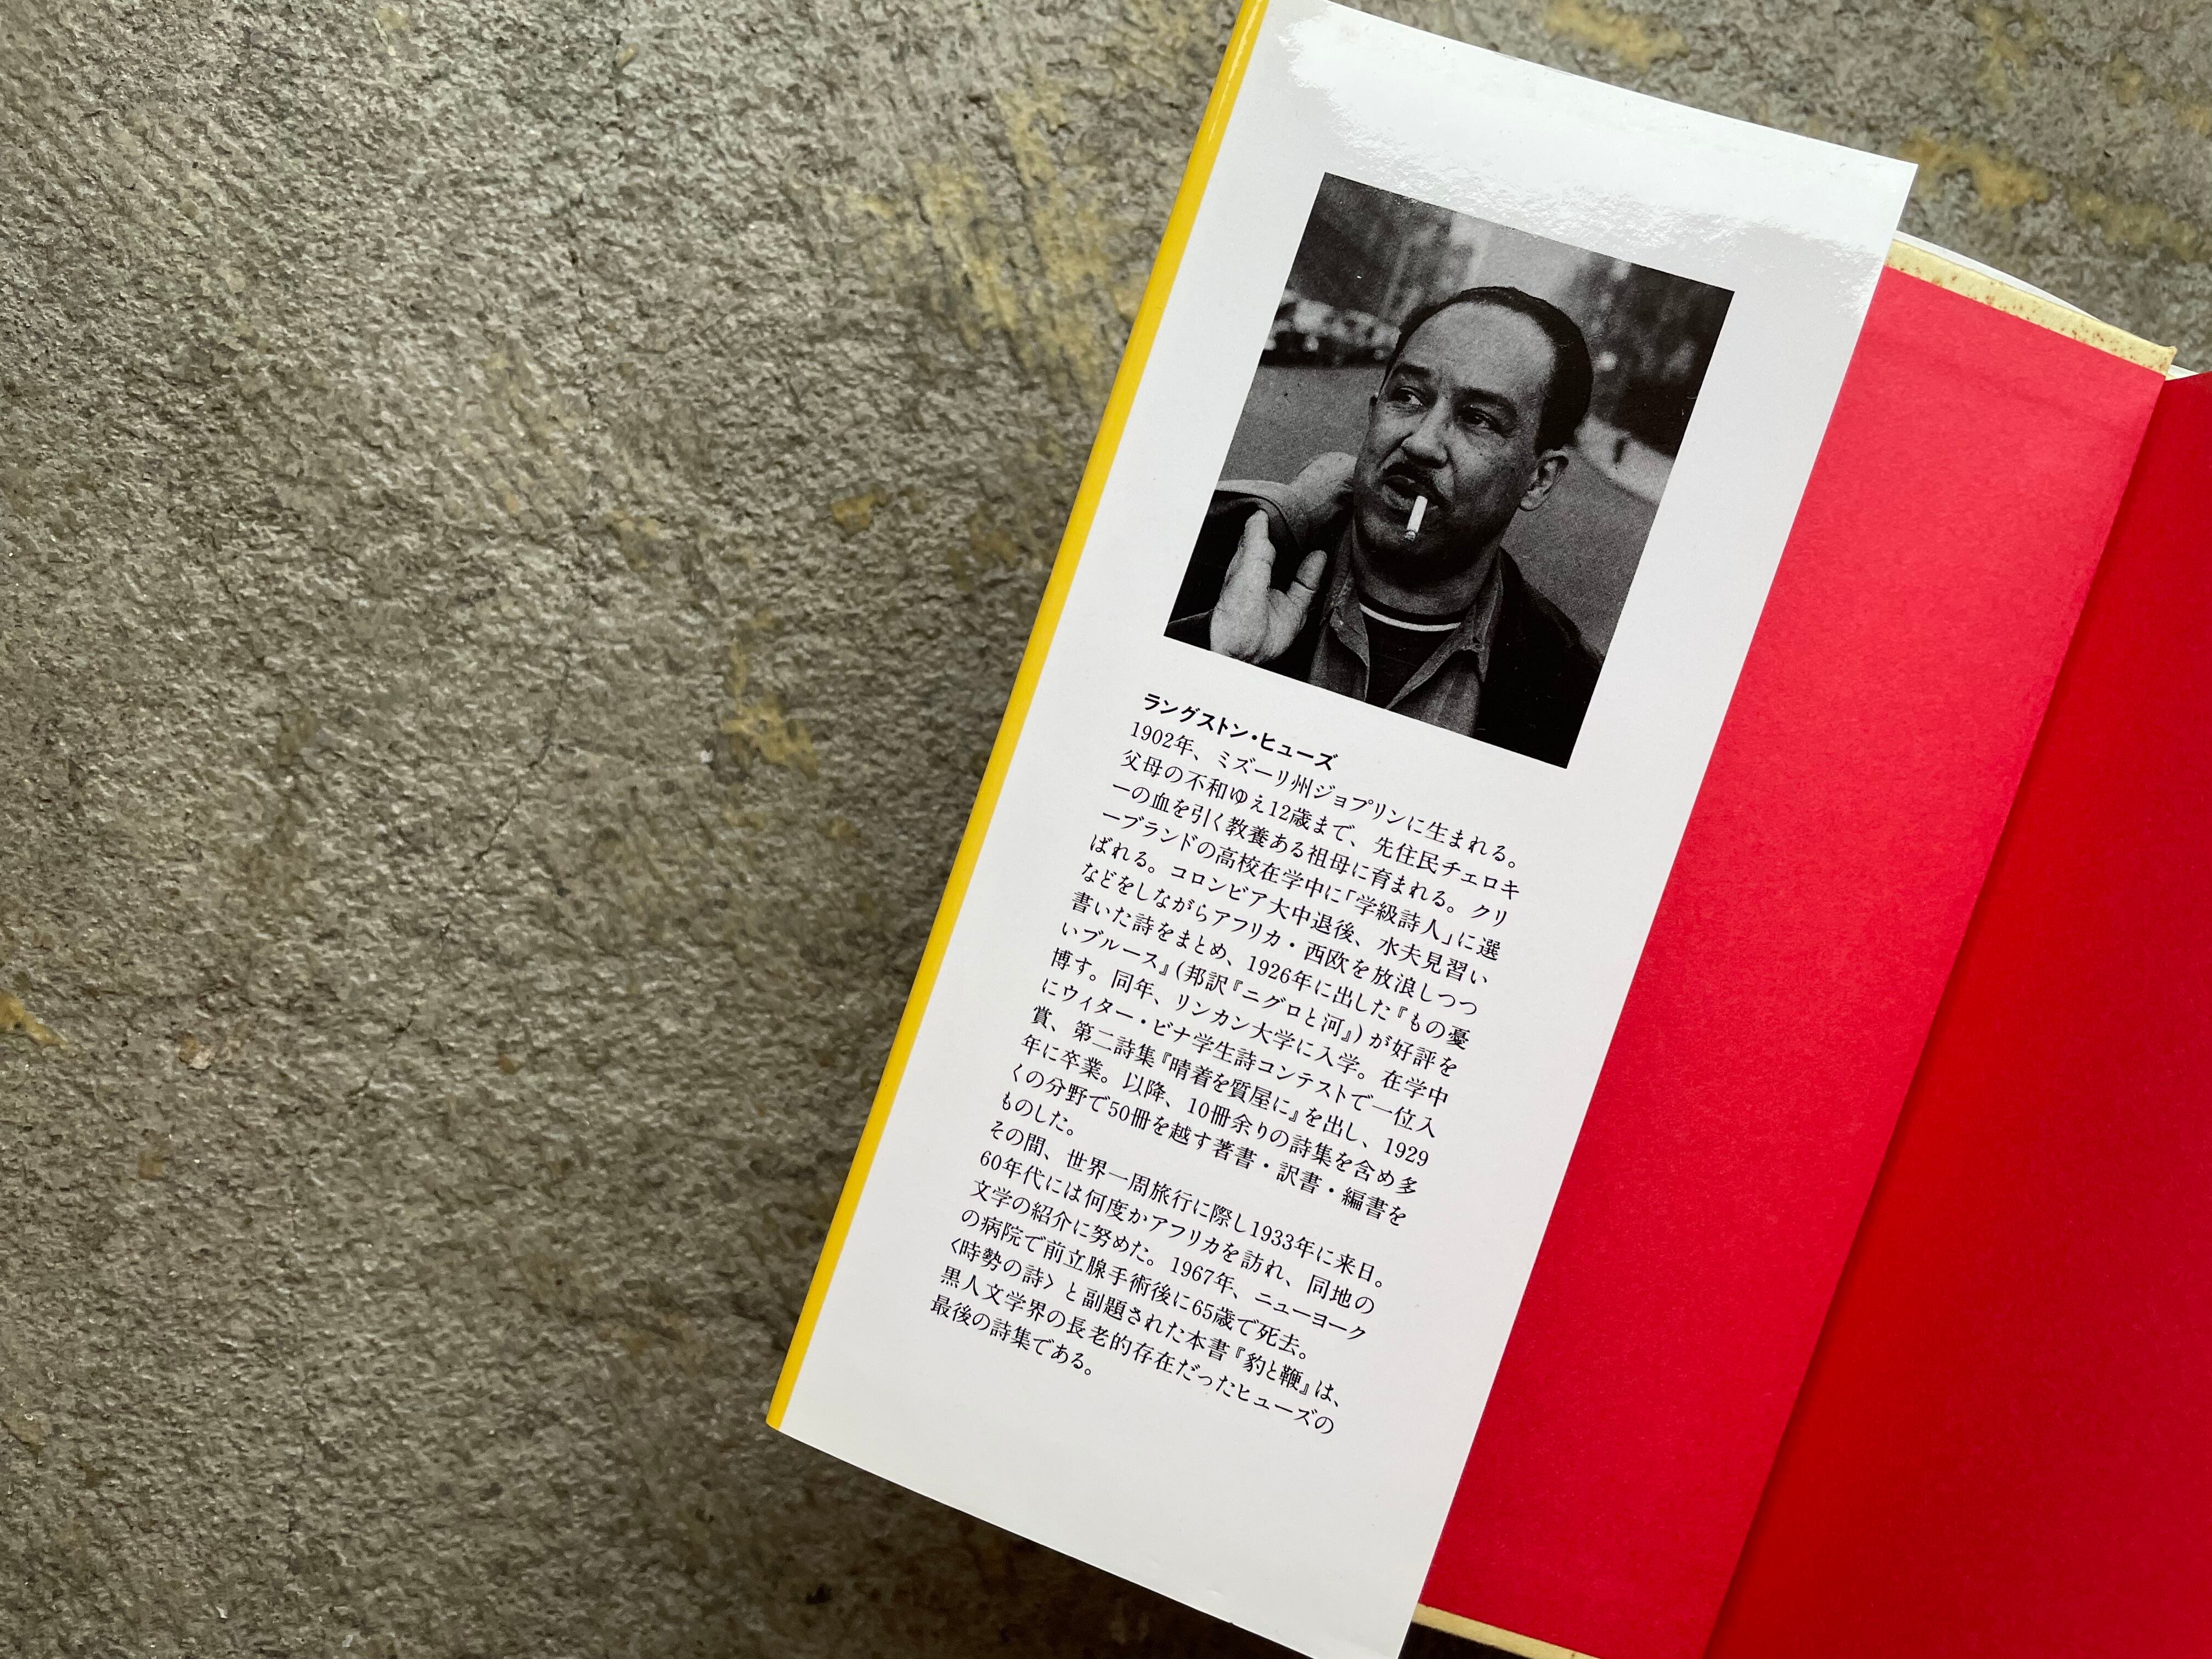 ラングストン・ヒューズ
1902年、ミズーリ州ジョプリンに生まれる。
父母の不和ゆえ12歳まで、先住民チェロキ
ーの血を引く教養ある祖母に育まれる。クリ
ーブランドの高校在学中に「学級詩人」に選
ばれる。コロンビア大中退後、水夫見習い
などをしながらアフリカ・西欧を放浪しつつ
書いた詩をまとめ、1926年に出した『もの憂
いブルース』(邦訳『ニグロと河』)が好評を
博す。同年、リンカン大学に入学。在学中
にウィター・ビナ学生詩コンテストで一位入
賞、第二詩集『晴着を質屋に』を出し、1929
年に卒業。以降、10冊余りの詩集を含め多
くの分野で50冊を越す著書・訳書・編書を
ものした。
その間、世界一周旅行に際し1933年に来日。
60年代には何度かアフリカを訪れ、同地の
文学の紹介に努めた。1967年、ニューヨーク
の病院で前立腺手術後に65歳で死去。
〈時勢の詩〉と副題された本書『豹と鞭』は、
黒人文学界の長老的存在だったヒューズの
最後の詩集である。